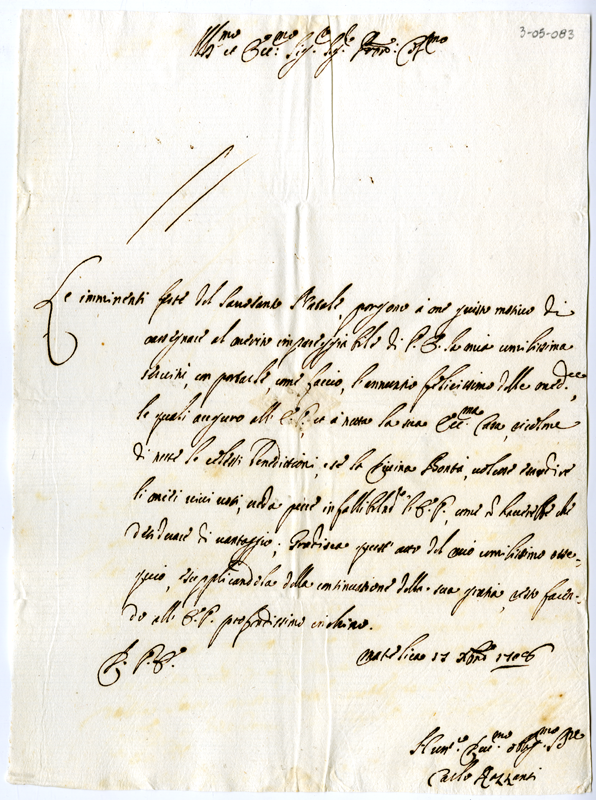 3-05-083
Ill.mo et Ecc.mo Sig.re Sig.re P̃rōn Col.mo
Le imminenti feste del Santissimo Natale, porgono à me giusto motivo di
rassegnare al merito impareggiabile di V. E. la mia umilissima
servitù, con portarle, come faccio, l'annuntio felicissimo delle med.me,
le quali auguro all' E. V. et à tutta la sua Ecc.ma Casa, ricolme
di tutte le celesti benedizioni, e se la Divina Bontà, volesse esaudire
li miei vivi voti, vedrà pure infallibilm.te l' E. V. come n'haverebbe che
desiderare di vantaggio; Gradisca quest' atto del mio umilissimo osse-
quio, e supplicandola della continuazione della sua gratia, resto facen-
do all' E. V. profondissimo inchino.
D. V. E.
Matelica 17 Xbre 1706
Hum.o Dev.mo Obl.mo S.re
Carlo